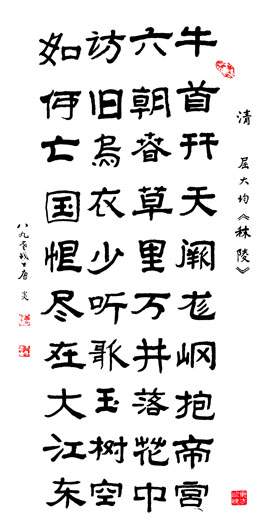 清 屈大均《秣陵》
牛首开天阙龙岗抱帝宫
六朝春草里万井落花中
访旧乌衣少听歌玉树空
如何亡国恨尽在大江东
八九年